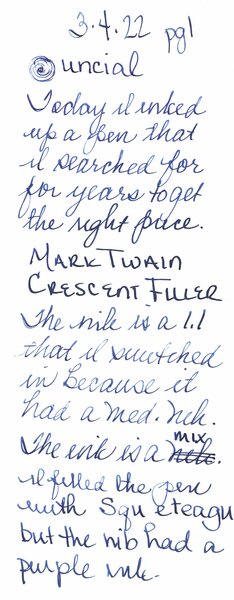 3.4.22 pg1
@uncial
Today I inked
up a pen that
I searched for
for years to get
the right price.
MARK TWAIN
CRESCENT FILLER
The nib is a 1.1
that I switched
in because it
had a med. nib.
The ink is a mix
I filled the pen
with Squeteague
but the nib had a
purple ink.